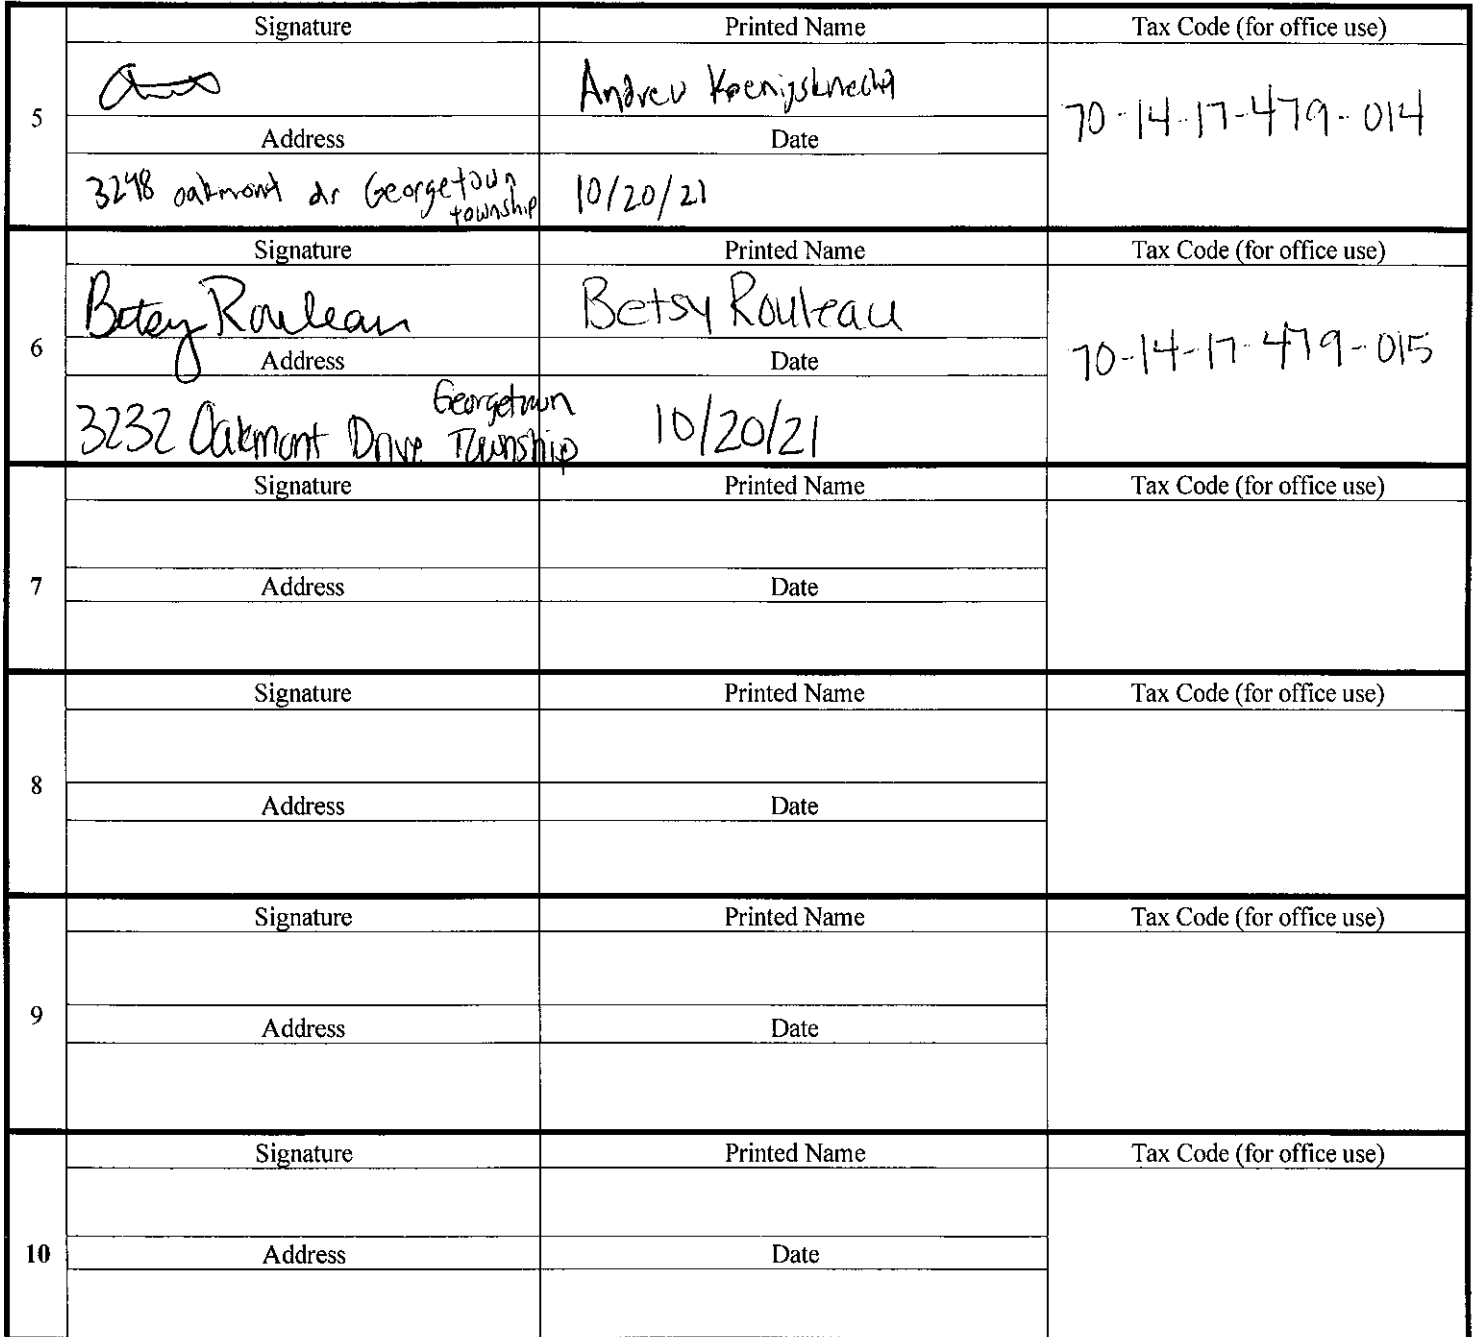 Signature Printed Name Tax Code (for office use)
Andrew Koenigsknecht
5 70-14-17-479-014
Address Date
3248 oakmont dr Georgetown township 10/20/21
Signature Printed Name Tax Code (for office use)
Betsy Rouleau Betsy Rouleau
6 70-14-17-479-015
Address Date
3232 Oakmont Drive Georgetown Township 10/20/21
Signature Printed Name Tax Code (for office use)
7 Address Date
Signature Printed Name Tax Code (for office use)
8
Address Date
Signature Printed Name Tax Code (for office use)
9
Address Date
Signature Printed Name Tax Code (for office use)
10 Address Date